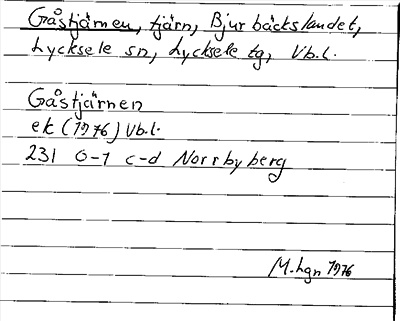 Gåstjärnen, tjärn, Bjurbäckslandet,
Lycksele sn, Lycksele tg, Vb.l.
Gåstjärnen
ek (1976) Vb.l.
231 0-1 c-d Norrbyberg
M.hgn 1976